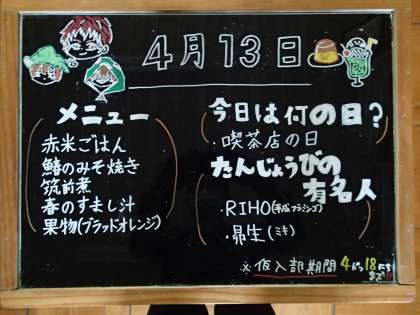 4月13日
メニュー
赤米ごはん
鰆のみそ焼き
筑前煮
春のすまし汁
果物(ブラッドオレンジ)
今日は何の日?
・喫茶店の日
たんじょうびの
有名人
・RIHO(平成フラミンゴ)
・昴生(ミキ)
※仮入部期間 4がつ18にち
まで